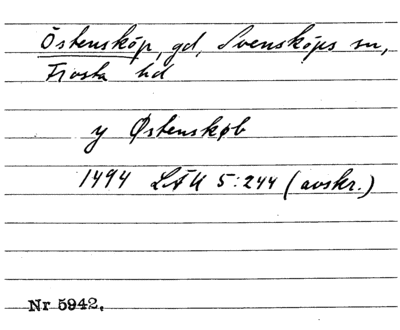 Östensköp, gd, Svensköps sn,
Frosta hd
y Østenskøb
1494 LÄU 5:244 (avskr.)
Nr 5942.